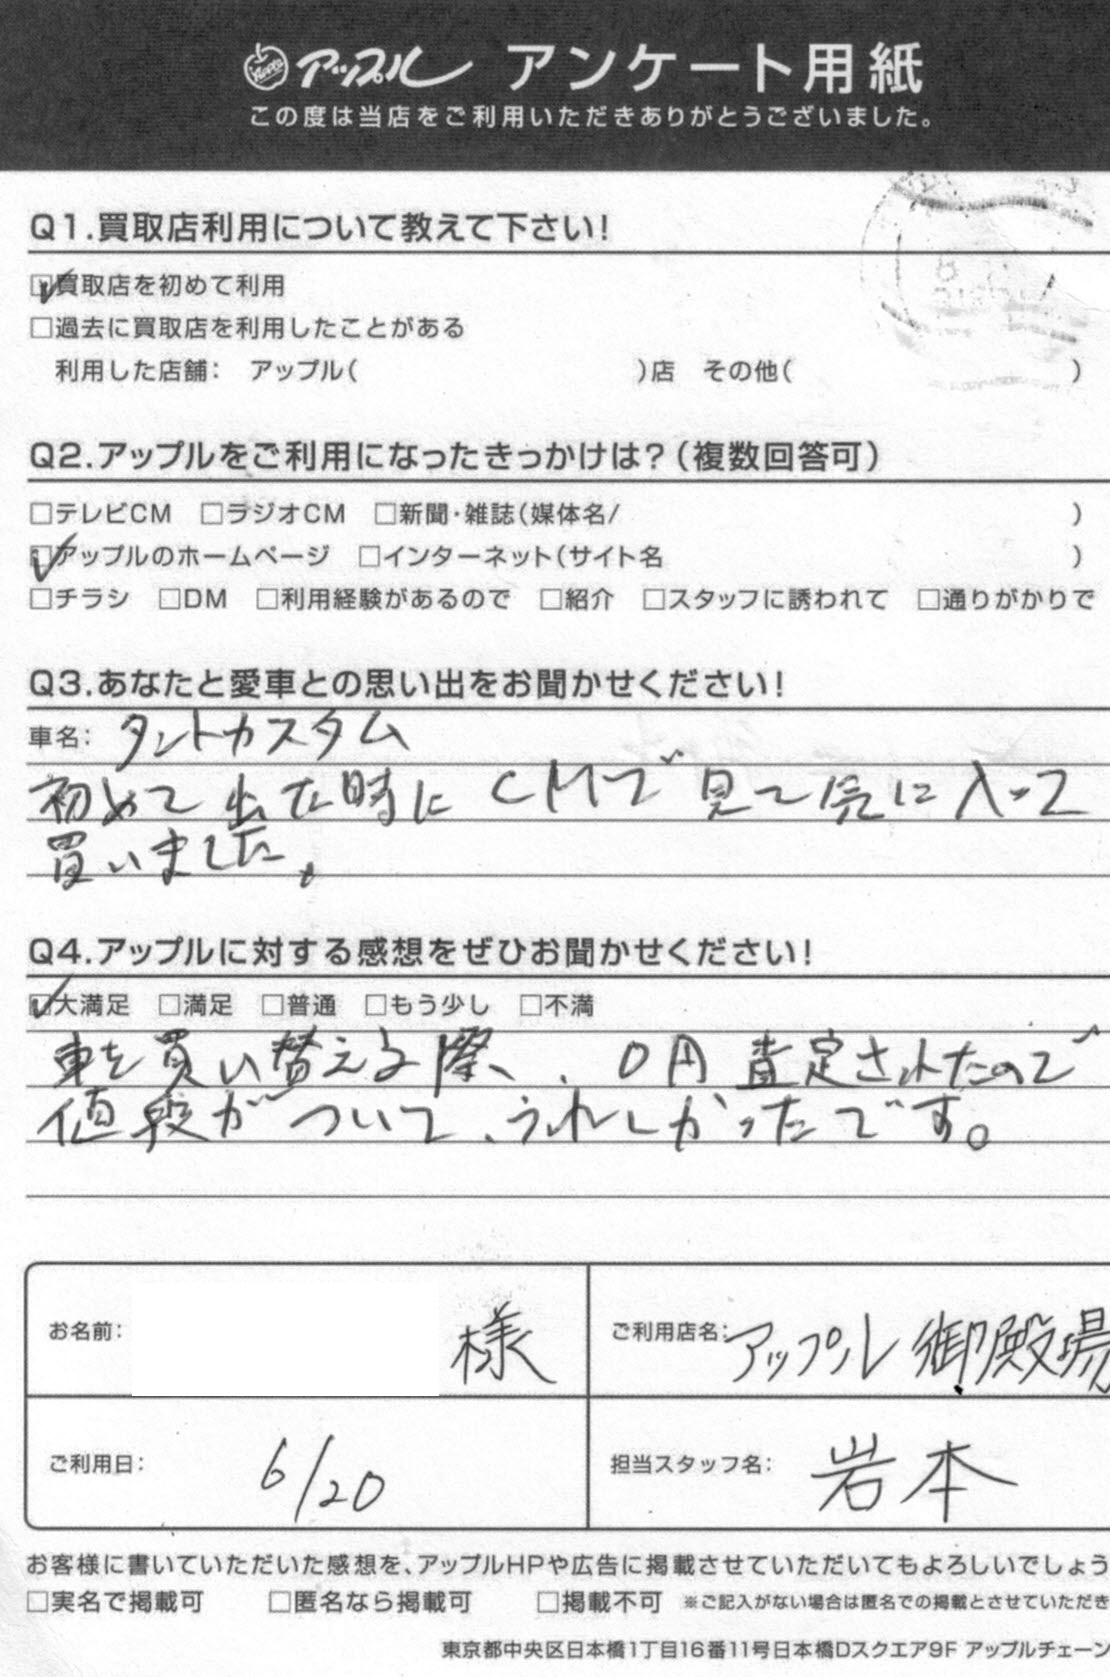 アップル アンケート用紙
この度は当店をご利用いただきありがとうございました。
Q1.買取店利用について教えて下さい!
☑買取店を初めて利用
□過去に買取店を利用したことがある
利用した店舗: アップル( )店 その他( )
Q2.アップルをご利用になったきっかけは?(複数回答可)
□テレビCM □ラジオCM □新聞・雑誌(媒体名/ )
☑アップルのホームページ □インターネット(サイト名 )
□チラシ □DM □利用経験があるので □紹介 □スタッフに誘われて □通りがかりで
Q3.あなたと愛車との思い出をお聞かせください!
車名: タントカスタム
初めて出た時にCMで見て気に入って
買いました。
Q4.アップルに対する感想をぜひお聞かせください!
☑大満足 □満足 □普通 □もう少し □不満
車を買い替える際、0円査定されたので
値段がついて、うれしかったです。
お名前: 様
ご利用店名: アップル御殿場
ご利用日: 6/20
担当スタッフ名: 岩本
お客様に書いていただいた感想を、アップルHPや広告に掲載させていただいてもよろしいでしょう
□実名で掲載可 □匿名なら掲載可 □掲載不可 ※ご記入がない場合は匿名での掲載とさせていただき
東京都中央区日本橋1丁目16番11号日本橋Dスクエア9F アップルチェーン